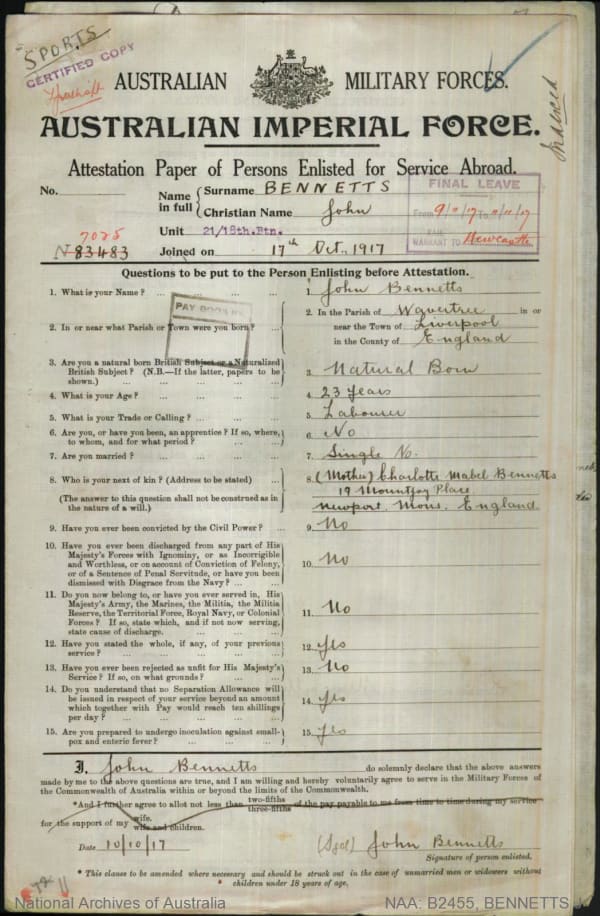 SPORTS
CERTIFIED COPY
AUSTRALIAN MILITARY FORCES.
Indexed
AUSTRALIAN IMPERIAL FORCE.
Attestation Paper of Persons Enlisted for Service Abroad.
No.
Name in full { Surname BENNETTS
Christian Name John
FINAL LEAVE
From 9/11/17 To 11/17
WARRANT TO Newcastle
Unit 21/18th.Btn.
7025
N83483
Joined on 17th Oct. 1917
Questions to be put to the Person Enlisting before Attestation.
1. What is your Name? ... 1. John Bennetts
PAY BOOK
2. In or near what Parish or Town were you born? ... 2. In the Parish of Wavertree in or
near the Town of Liverpool
in the County of England
3. Are you a natural born British Subject or a Naturalized
British Subject? (N.B.—If the latter, papers to be
shown.) ... 3. Natural Born
4. What is your Age? ... 4. 23 years
5. What is your Trade or Calling? ... 5. Labourer
6. Are you, or have you been, an apprentice? If so, where,
to whom, and for what period? ... 6. No
7. Are you married? ... 7. Single No.
8. Who is your next of kin? (Address to be stated) ... 8. (Mother) Charlotte Mabel Bennetts
19 Mountjoy Place
(The answer to this question shall not be construed as in
the nature of a will.) Newport. Mons. England
9. Have you ever been convicted by the Civil Power? ... 9. No
10. Have you ever been discharged from any part of His
Majesty's Forces with Ignominy, or as Incorrigible
and Worthless, or on account of Conviction of Felony,
or of a Sentence of Penal Servitude, or have you been
dismissed with Disgrace from the Navy? ... 10. No
11. Do you now belong to, or have you ever served in, His
Majesty's Army, the Marines, the Militia, the Militia
Reserve, the Territorial Force, Royal Navy, or Colonial
Forces? If so, state which, and if not now serving,
state cause of discharge. ... 11. No
12. Have you stated the whole, if any, of your previous
service? ... 12. Yes
13. Have you ever been rejected as unfit for His Majesty's
Service? If so, on what grounds? ... 13. No
14. Do you understand that no Separation Allowance will
be issued in respect of your service beyond an amount
which together with Pay would reach ten shillings
per day? ... 14. Yes
15. Are you prepared to undergo inoculation against small-
pox and enteric fever? ... 15. Yes
I, John Bennetts do solemnly declare that the above answers
made by me to the above questions are true, and I am willing and hereby voluntarily agree to serve in the Military Forces of
the Commonwealth of Australia within or beyond the limits of the Commonwealth.
*And I further agree to allot not less than two-fifths three-fifths of the pay payable to me from time to time during my service
for the support of my wife. wife and children.
Date 10/10/17 (Sgd) John Bennetts
Signature of person enlisted.
* This clause to be amended where necessary and should be struck out in the case of unmarried men or widowers without
children under 18 years of age.
National Archives of Australia
NAA: B2455, BENNETTS J